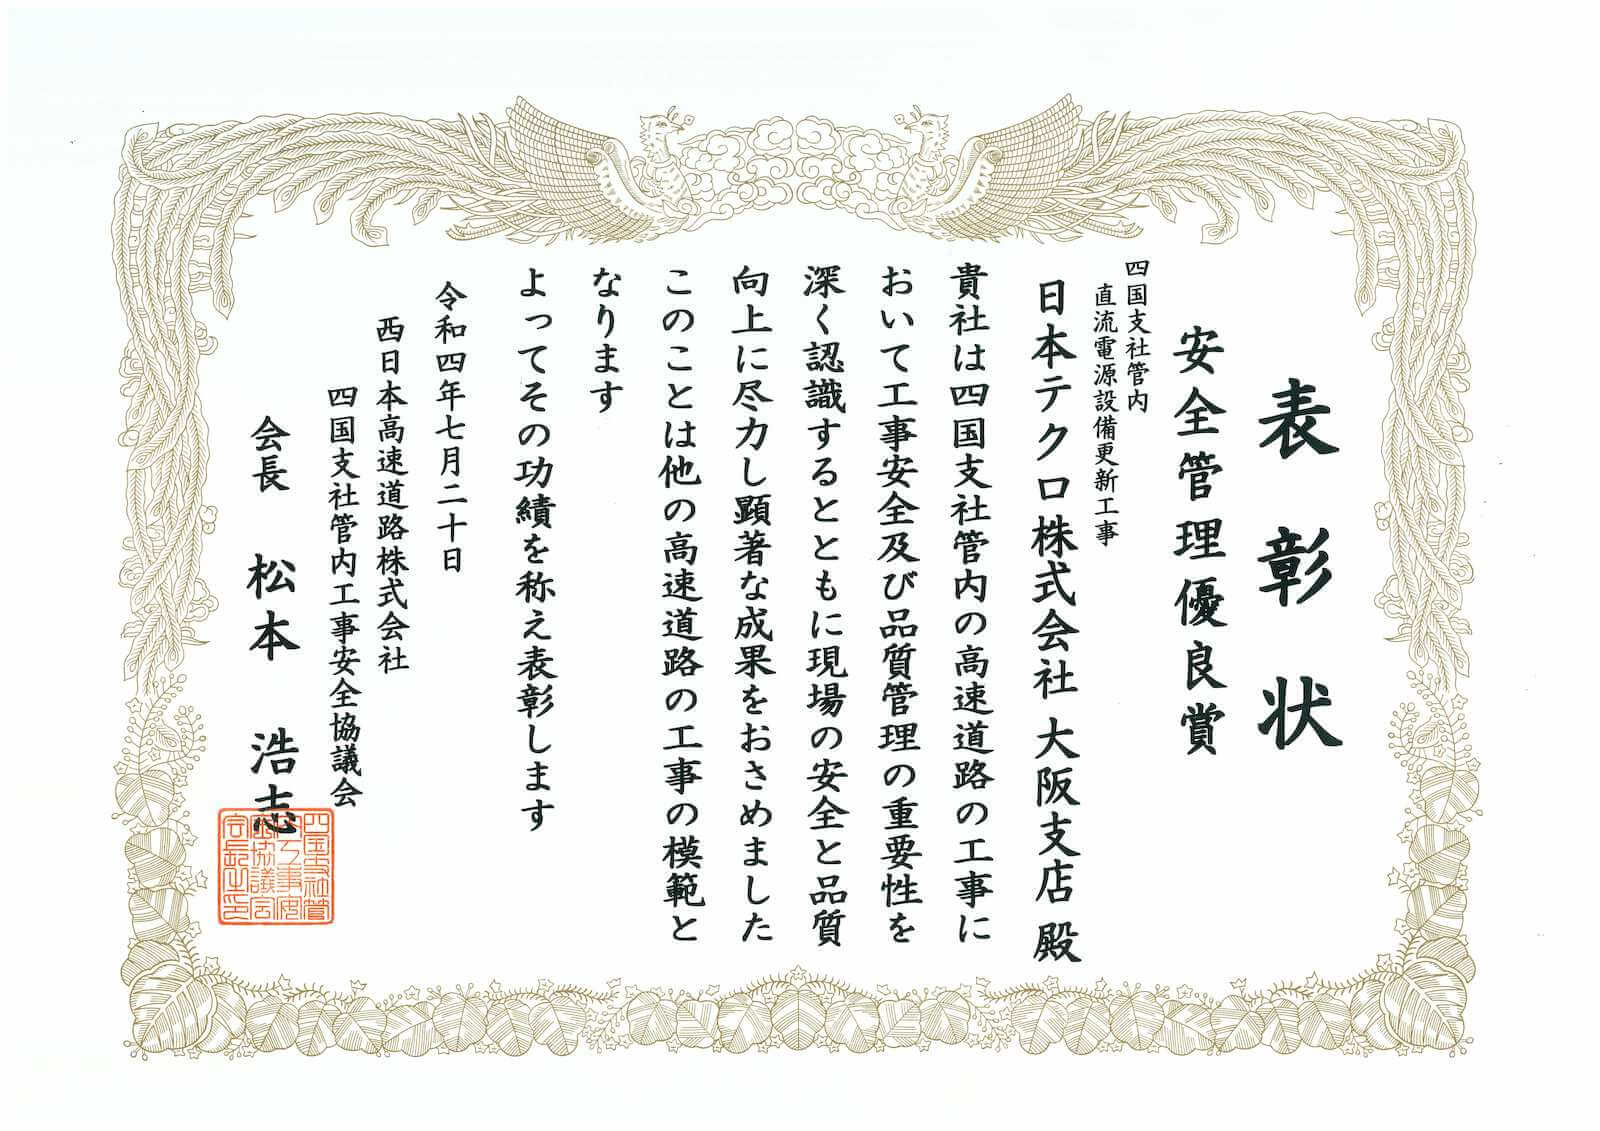 表彰状
安全管理優良賞
四国支社管内
直流電源設備更新工事
日本テクロ株式会社 大阪支店 殿
貴社は四国支社管内の高速道路の工事に
おいて工事安全及び品質管理の重要性を
深く認識するとともに現場の安全と品質
向上に尽力し顕著な成果をおさめました
このことは他の高速道路の工事の模範と
なります
よってその功績を称え表彰します
令和四年七月二十日
西日本高速道路株式会社
四国支社管内工事安全協議会
会長 松本 浩志
四国支社管
内工事安
全協議会
会長之印